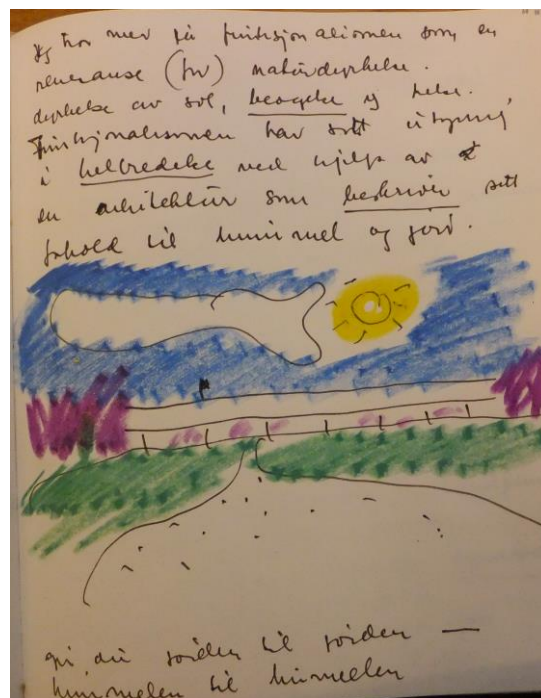 Jeg tror mer på funksjonalismen som en
renessanse (for) naturdyrkelse.
dyrkelse av sol, bevegelse og helse.
Funksjonalismen har sitt utspring
i helbredelse ved hjelp av
en arkitektur som beskriver sitt
forhold til himmel og jord.
gi du jorden til jorden —
himmelen til himmelen